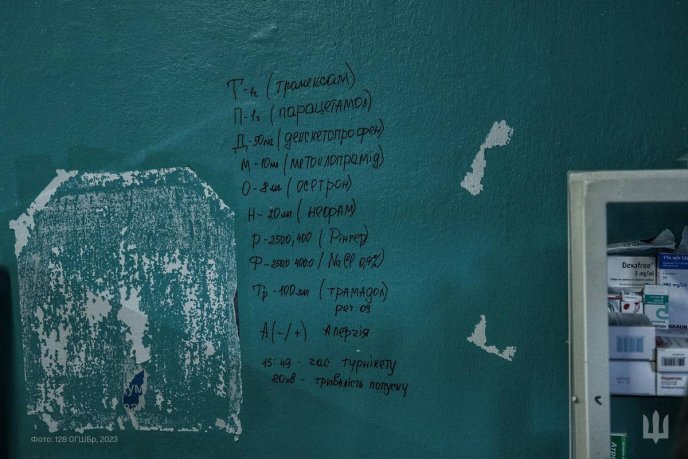 Т - 1г (трамексам)
П - 1г (парацетамол)
Д - 50мг (декскетопрофен)
М - 10мг (метоклопрамід)
О - 8мг (осетрон)
Н - 20мг (нефам)
Р - 250, 400 (Рінгер)
Ф - 250, 400 (NaCl 0,9%)
Тр - 100мг (трамадол)
per os
А (-/+) Алергія
15:49 - час турнікету
20хв - тривалість попуску
Dexafree
1 mg/ml
BRAUN
Фото: 128 ОГШБр, 2023